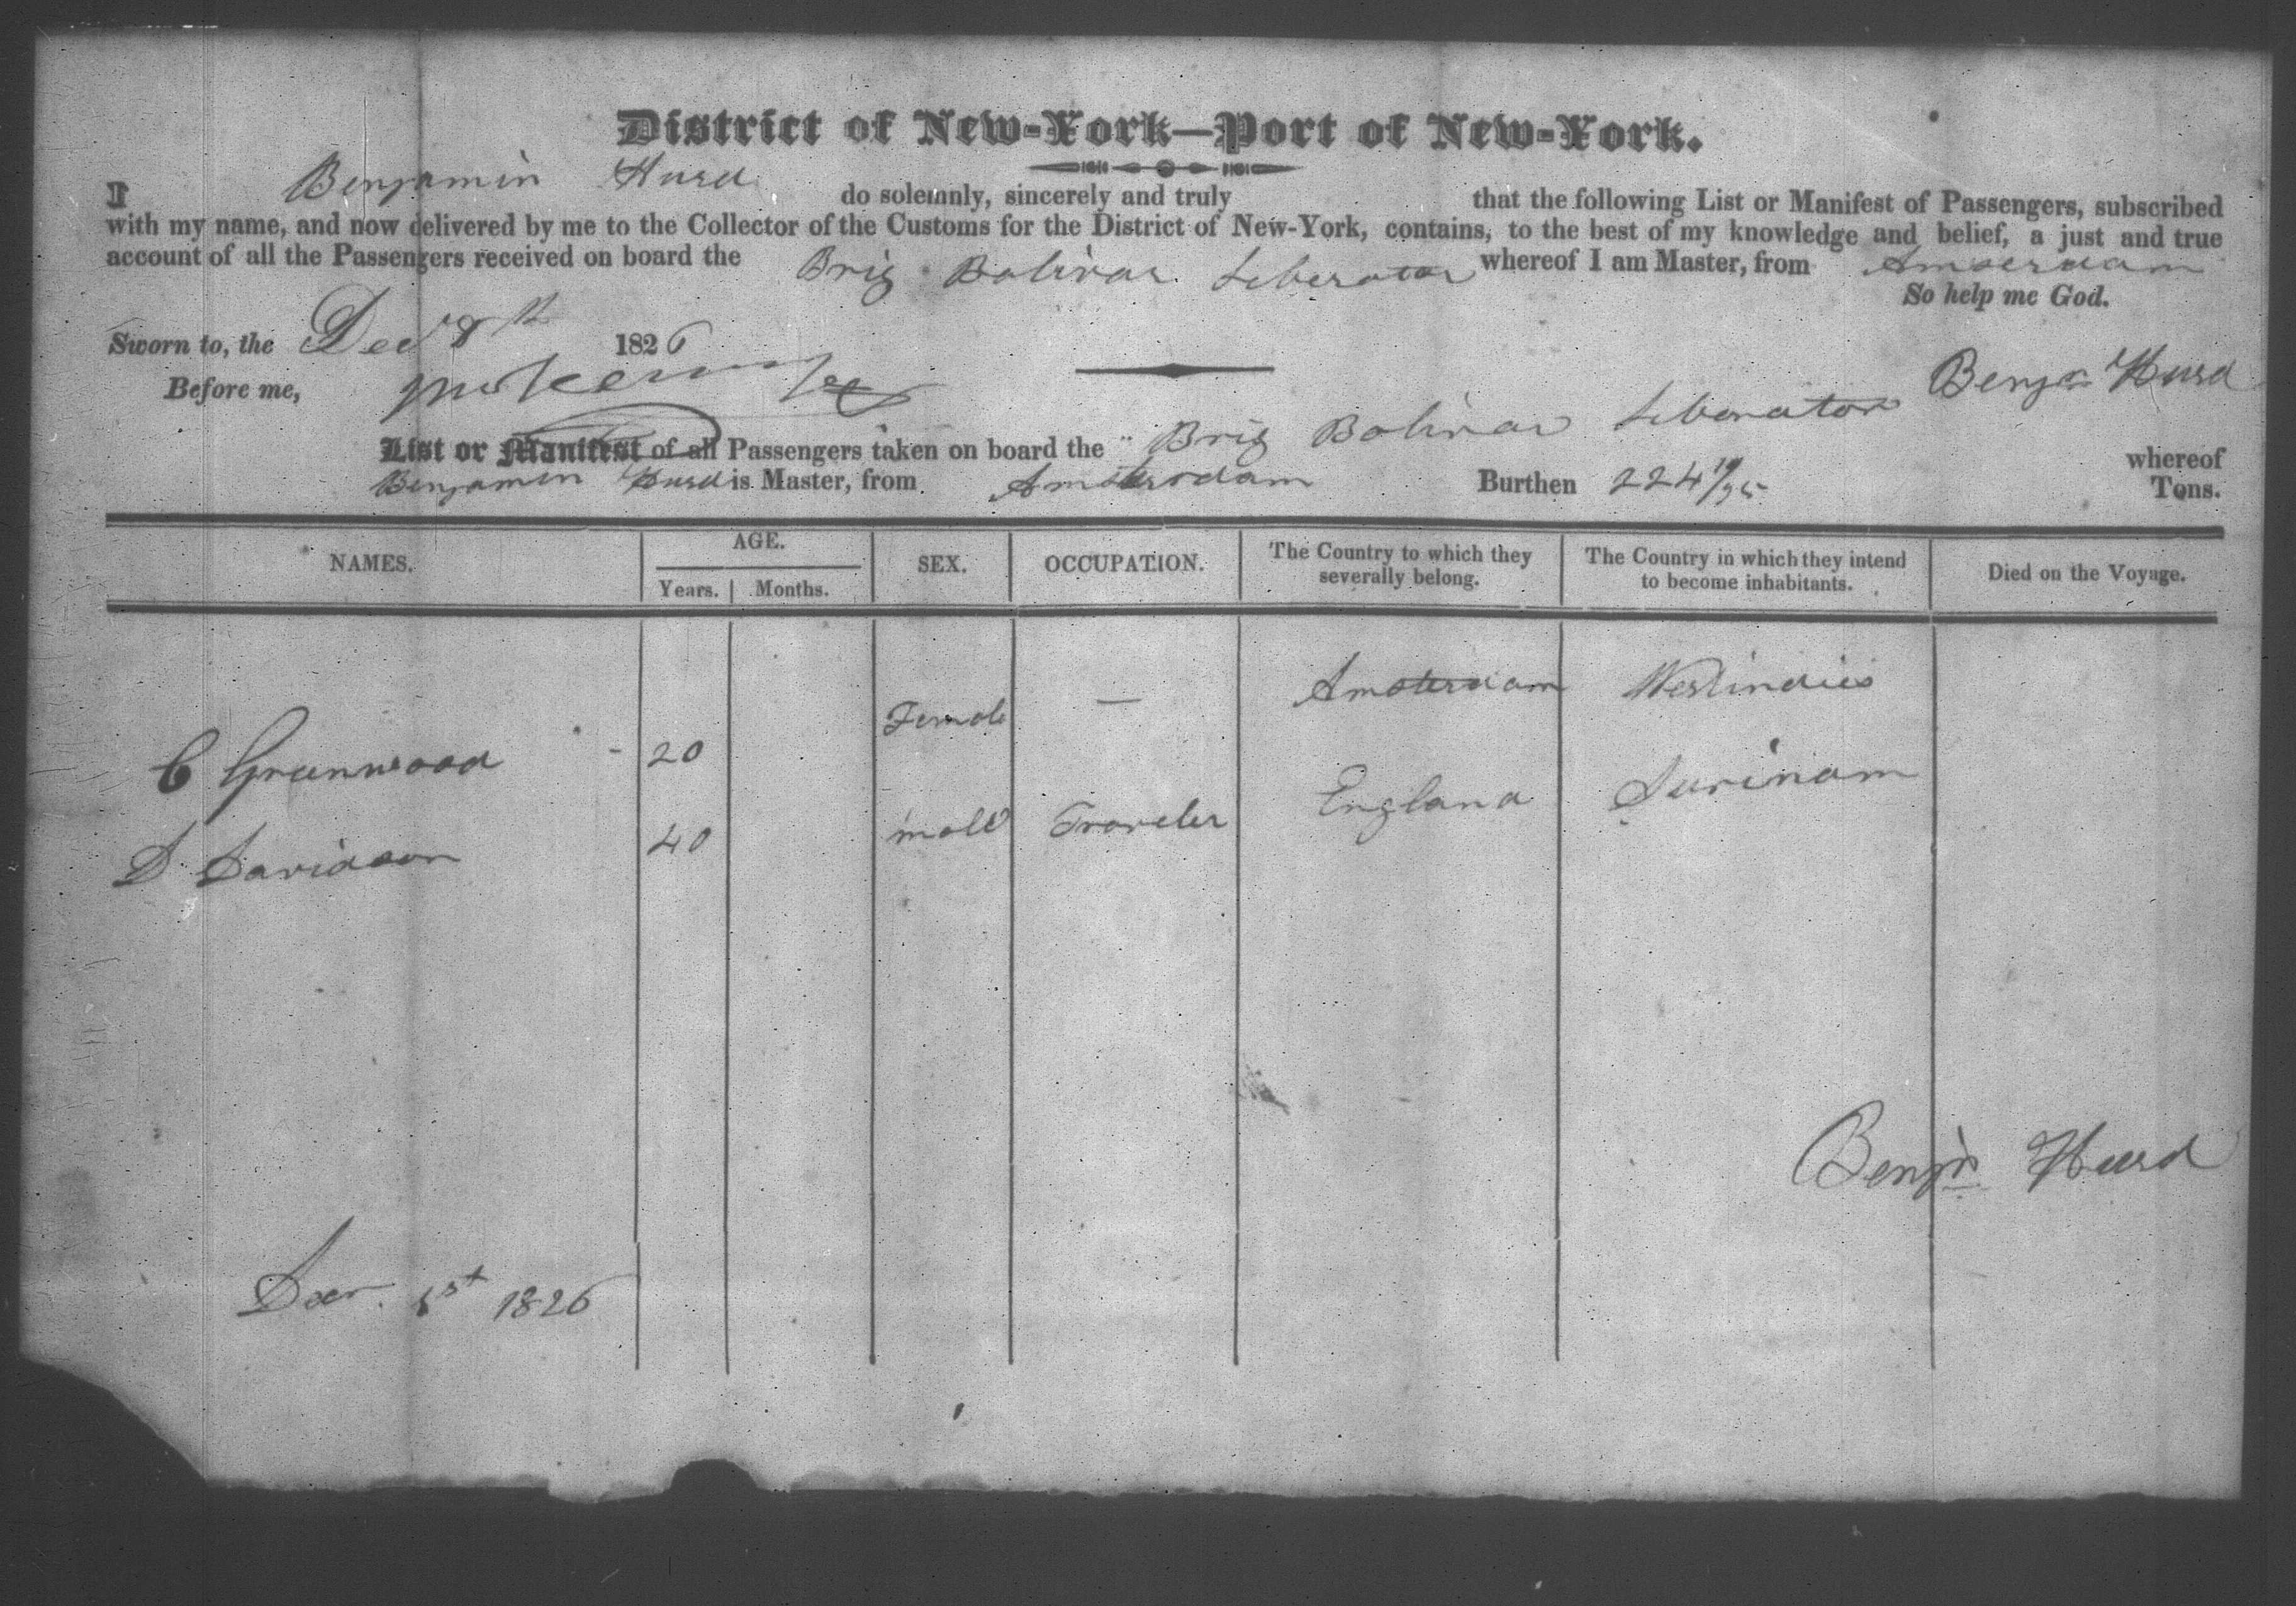 District of New-York—Port of New-York.
I Benjamin Hurd do solemnly, sincerely and truly that the following List or Manifest of Passengers, subscribed
with my name, and now delivered by me to the Collector of the Customs for the District of New-York, contains, to the best of my knowledge and belief, a just and true
account of all the Passengers received on board the Brig Bolivar Liberator whereof I am Master, from Amserdam
So help me God.
Sworn to, the Decr 8th 1826
Before me,
Benjn Hurd
List or Manifest of all Passengers taken on board the Brig Bolivar Liberator whereof
Benjamin Hurd is Master, from Amsterdam Burthen 224 Tons.
NAMES. AGE. SEX. OCCUPATION. The Country to which they severally belong. The Country in which they intend to become inhabitants. Died on the Voyage.
Years. Months.
C Greenwood - 20 Female — Amsterdam Westindies
D Davidson 40 male Traveler England Surinam
Benjn Hurd
Decr. 1826